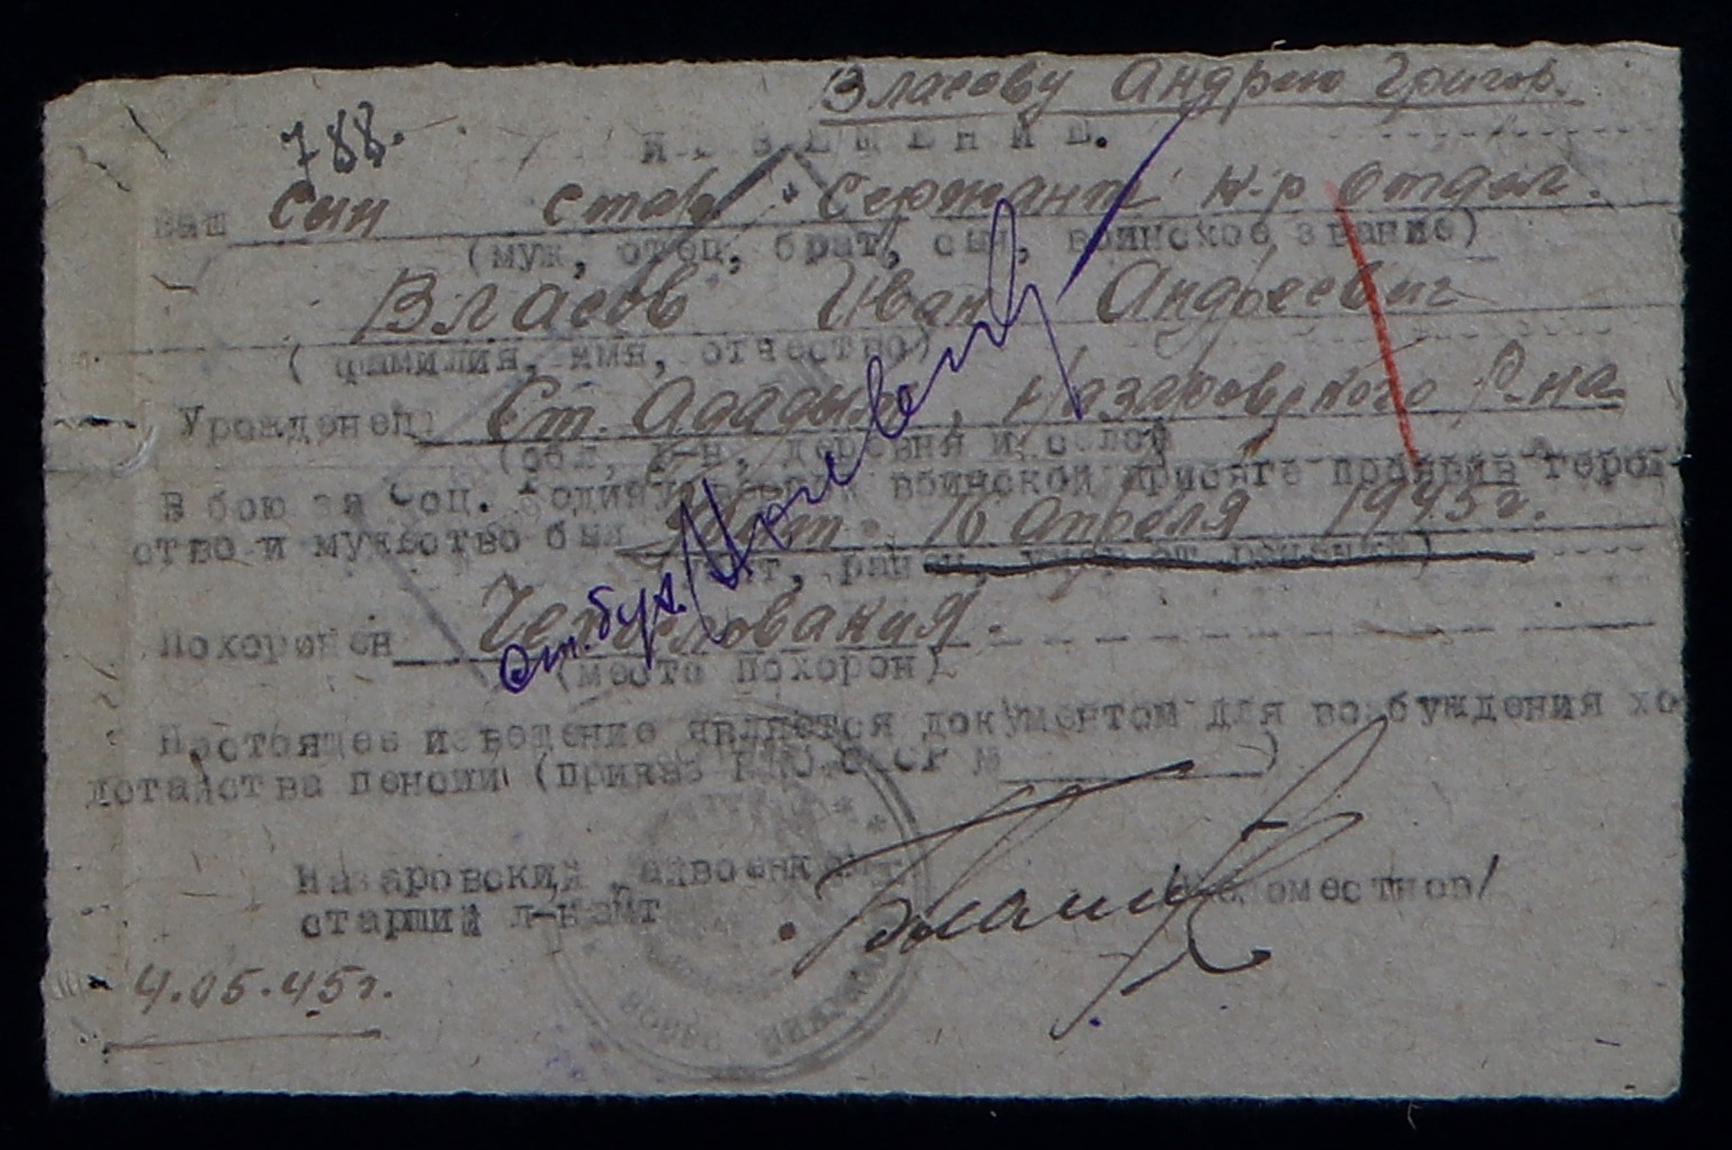 Власову Андрею Григор.
788.
ИЗВЕЩЕНИЕ.
Ваш сын стар. Сержант к-р отдел.
(муж, отец, брат, сын, воинское звание)
Власов Иван Андреевич
(фамилия, имя, отчество)
Урожденец Ст. Ададым, Назаровского Р-на
(обл, р-н, деревня и село)
В бою за Соц. Родину, верный воинской присяге проявив герой
ство и мужество был 16 апреля 1945 г.
Похоронен Чехословакия.
(место похорон)
От. бух.
Настоящее извещение является документом для возбуждения хо
датайства пенсии (приказ НКО СССР № )
Назаровский райвоенкомат
старший л-нант
4.05.45г.